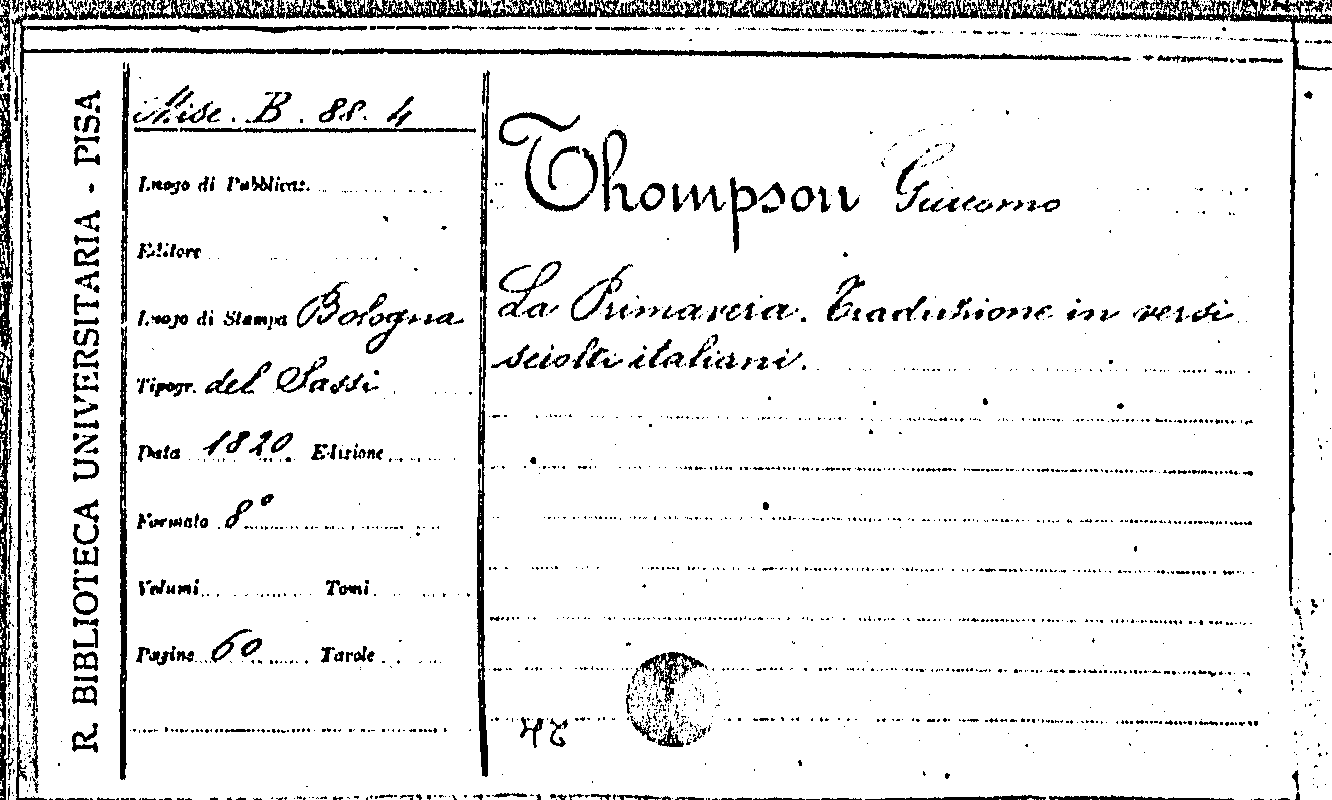 R. BIBLIOTECA UNIVERSITARIA - PISA
Misc. B. 88. 4
Luogo di Pubblicaz.
Editore
Luogo di Stampa Bologna
Tipogr. del Sassi
Data 1820. Edizione
Formato 8°
Volumi Tomi
Pagine 60 Tavole
Thompson Giacomo
La Primavera. Traduzione in versi
sciolti italiani.